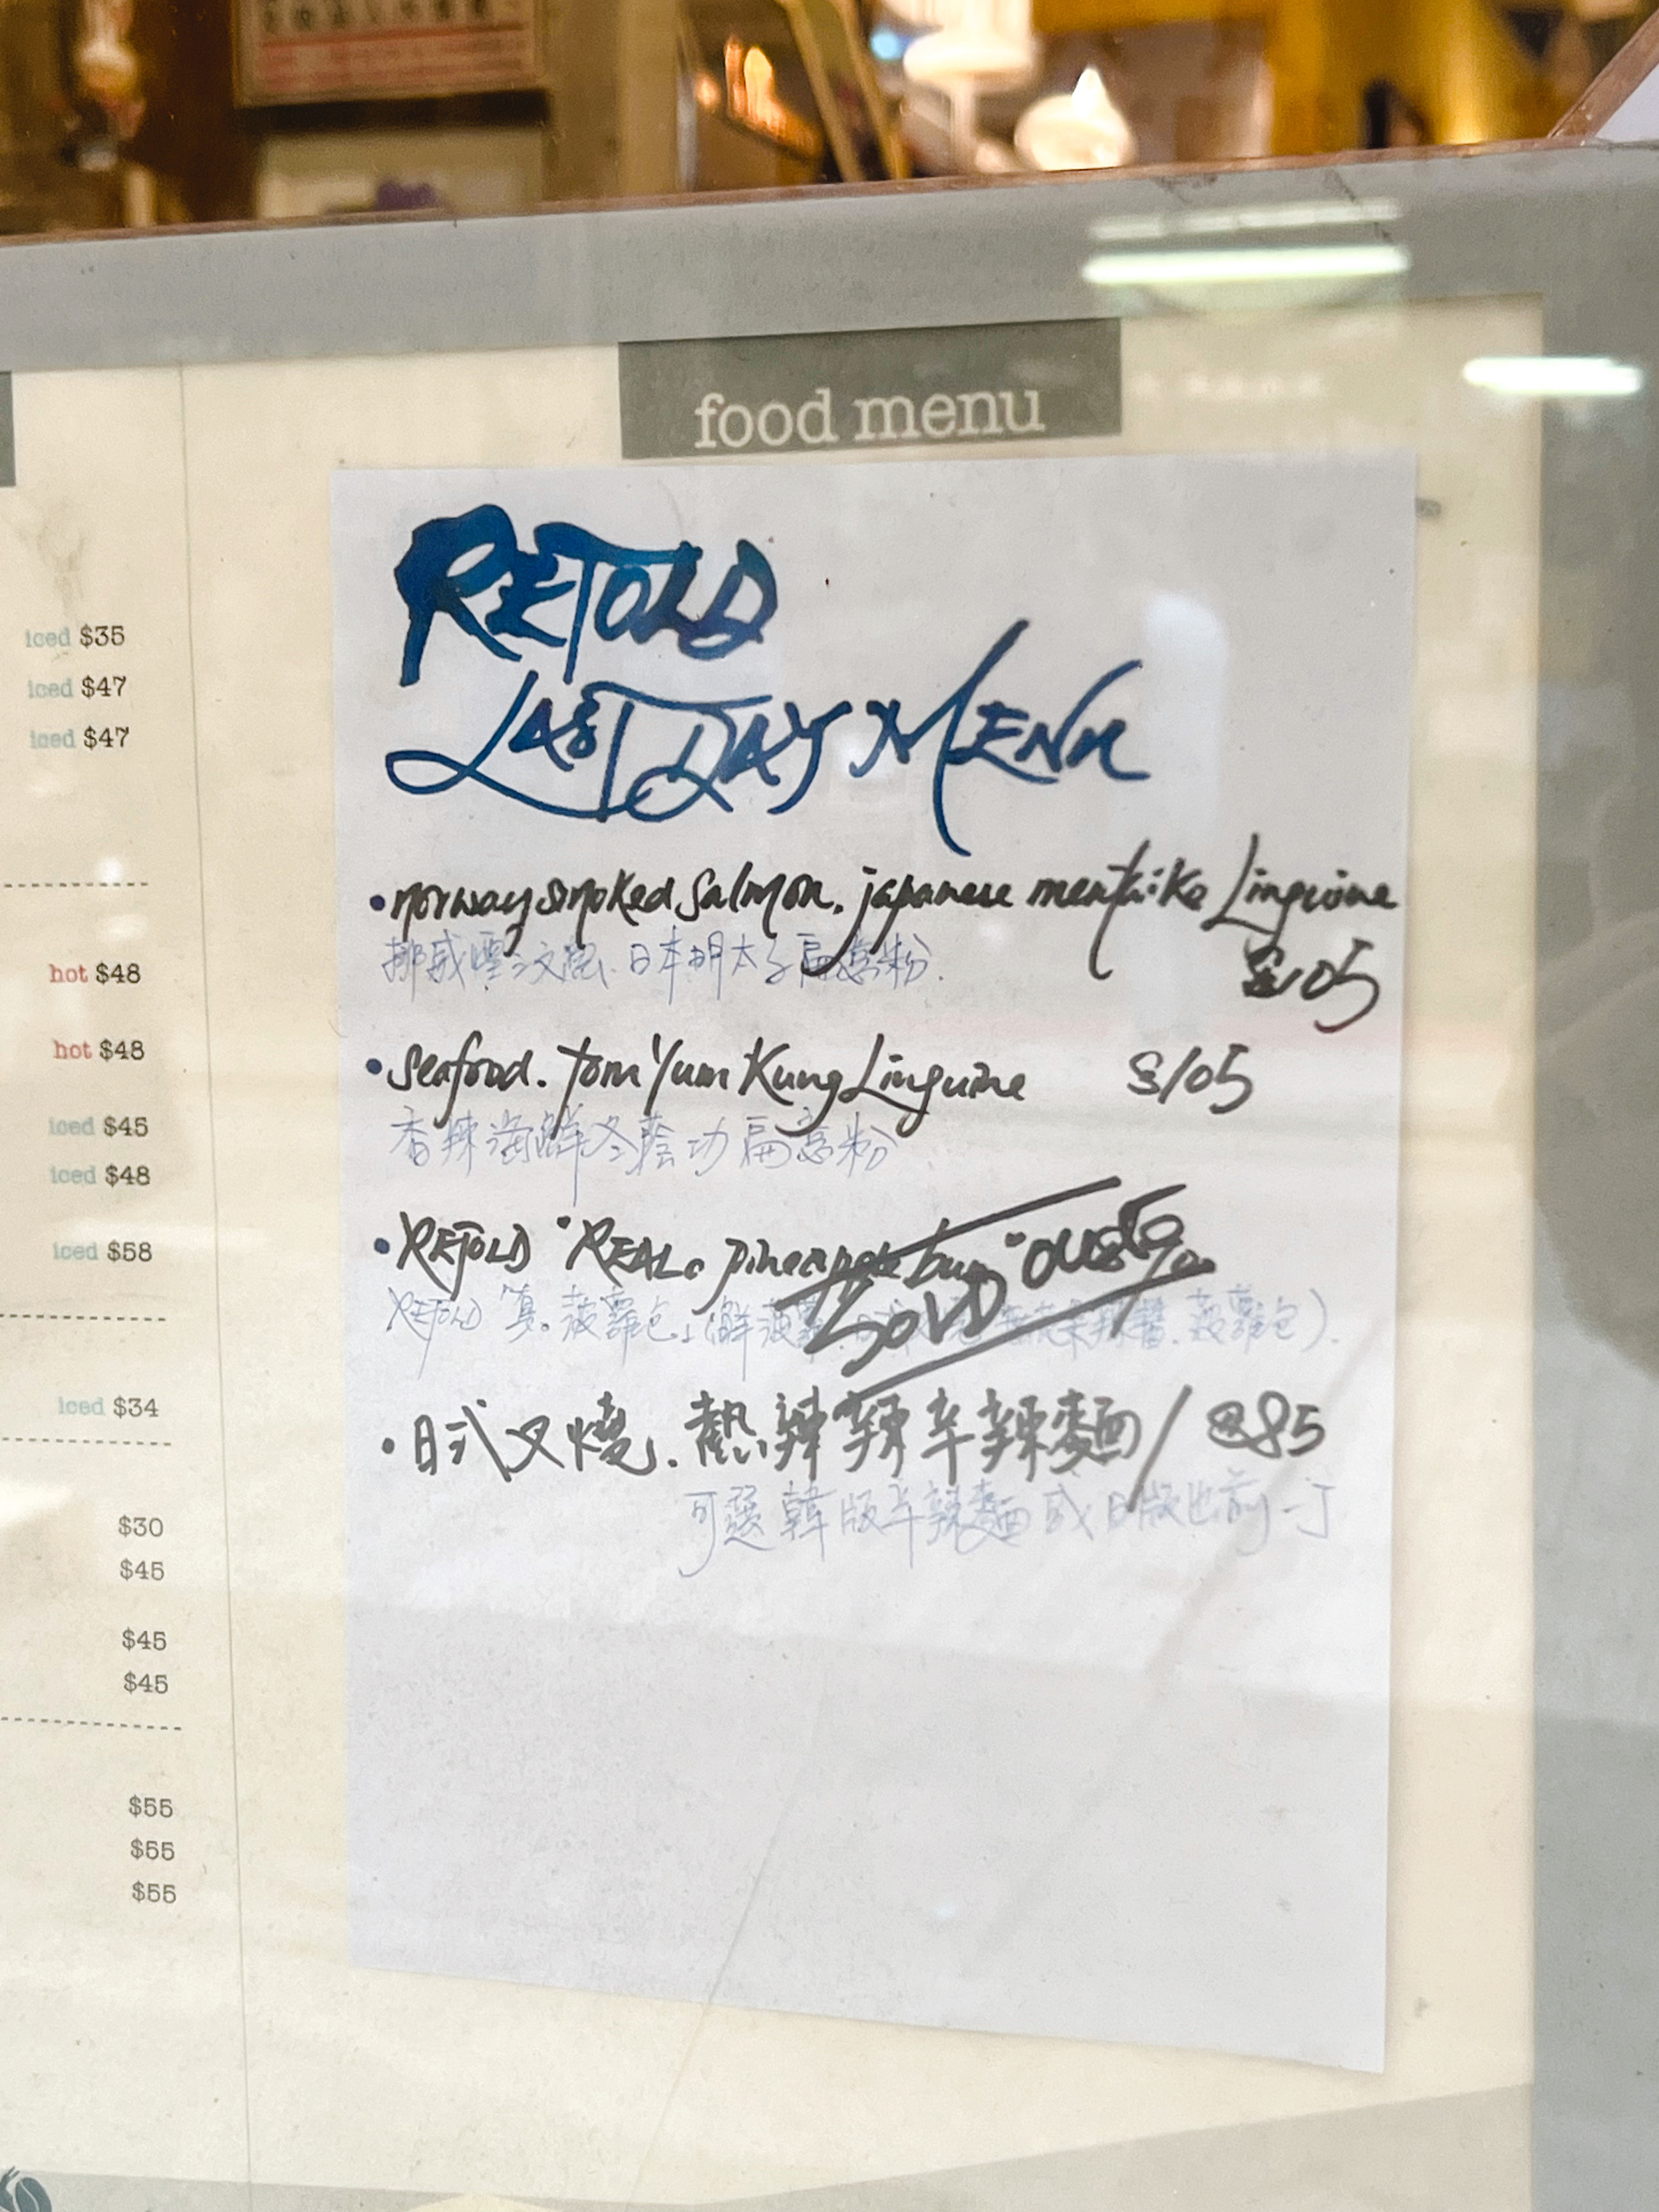 food menu
RETOLD
LAST DAY MENU
• norway smoked salmon. japanese mentaiko Linguine
挪威煙三文魚. 日本明太子扁意粉.
$105
• Seafood. Tom Yum Kung Linguine $105
香辣海鮮冬蔭功扁意粉
• RETOLD "REAL. pineapple bun"
SOLD OUT
RETOLD "真。菠蘿包"(鮮菠蘿 菠蘿包).
• 日式叉燒. 熱辣辣辛辣麵 / $85
可選韓版辛辣麵或日版出前一丁
iced $35
iced $47
iced $47
hot $48
hot $48
iced $45
iced $48
iced $58
iced $34
$30
$45
$45
$45
$55
$55
$55